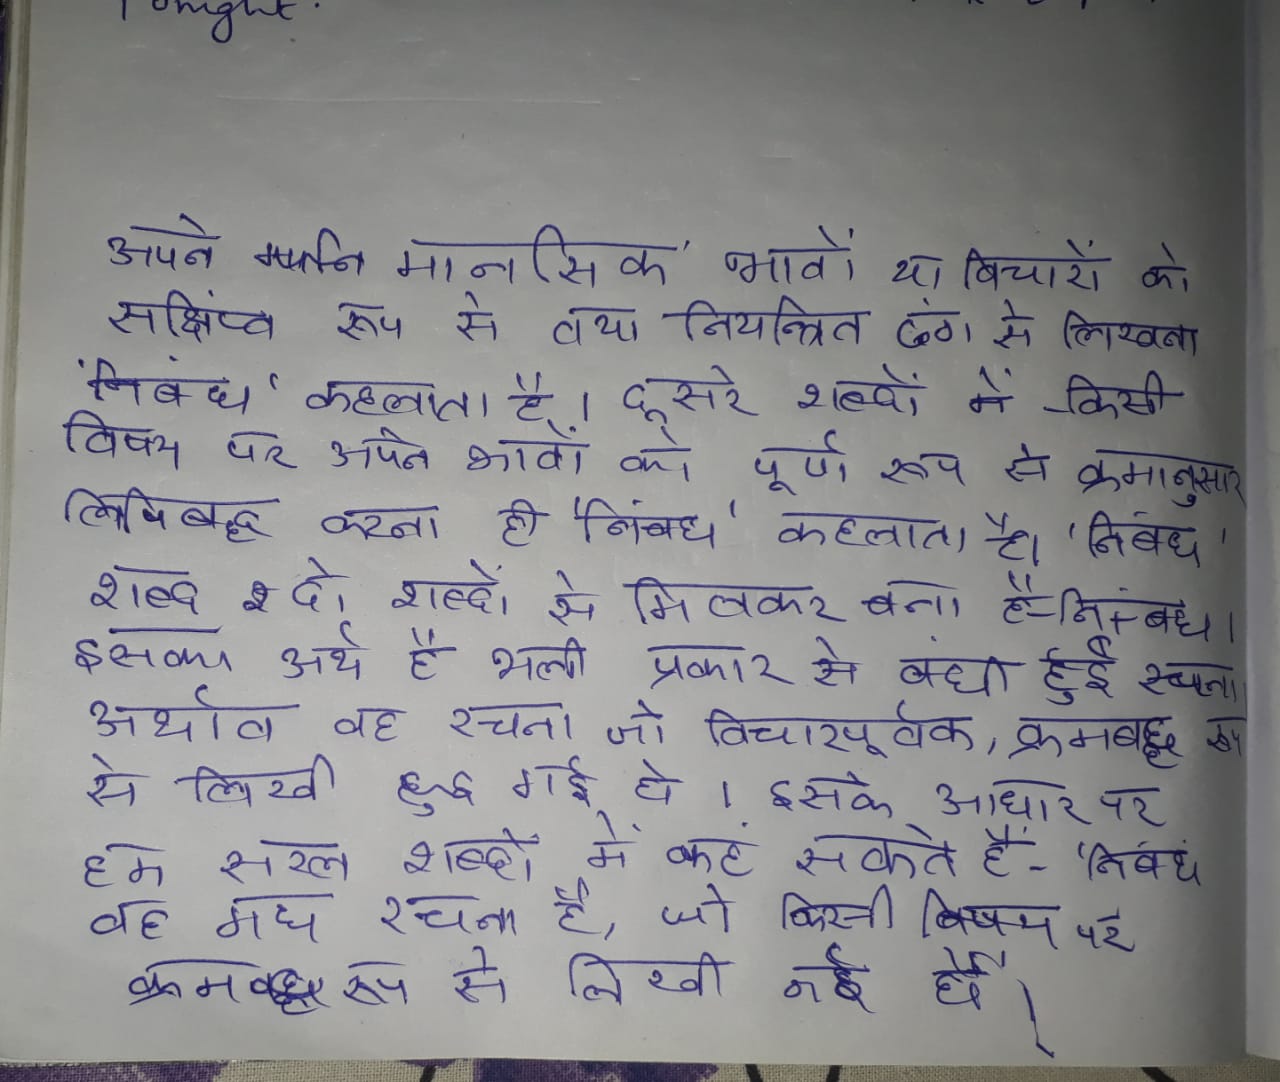 Tonight.
अपने मानसिक भावों या विचारों को
संक्षिप्त रूप से तथा नियन्त्रित ढंग से लिखना
'निबंध' कहलाता है। दूसरे शब्दों में किसी
विषय पर अपने भावों को पूर्ण रूप से क्रमानुसार
लिपिबद्ध करना ही 'निंबध' कहलाता है। 'निबंध'
शब्द दो शब्दों से मिलकर बना है-नि+बंध।
इसका अर्थ है भली प्रकार से बंधी हुई रचना
अर्थात वह रचना जो विचारपूर्वक, क्रमबद्ध रूप
से लिखी हुई गई हो। इसके आधार पर
हम सरल शब्दों में कह सकते हैं- 'निबंध
वह गध रचना है, जो किसी विषय पर
क्रमबद्ध रूप से लिखी गई हो।